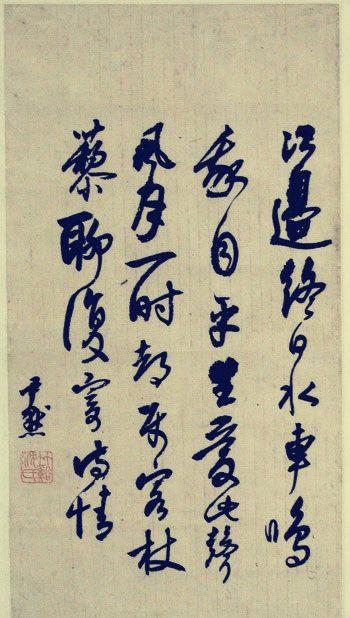 江邊終日水車鳴
我自平生愛此聲
風月一時都屬客杖
藜聊復寄詩情
尹默